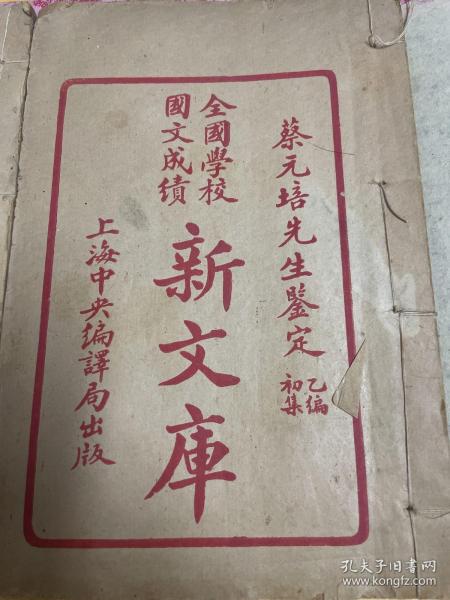 蔡元培先生鑒定
乙編
初集
全國學校
國文成績
新文庫
上海中央編譯局出版
孔夫子旧书网
www.kongfz.com